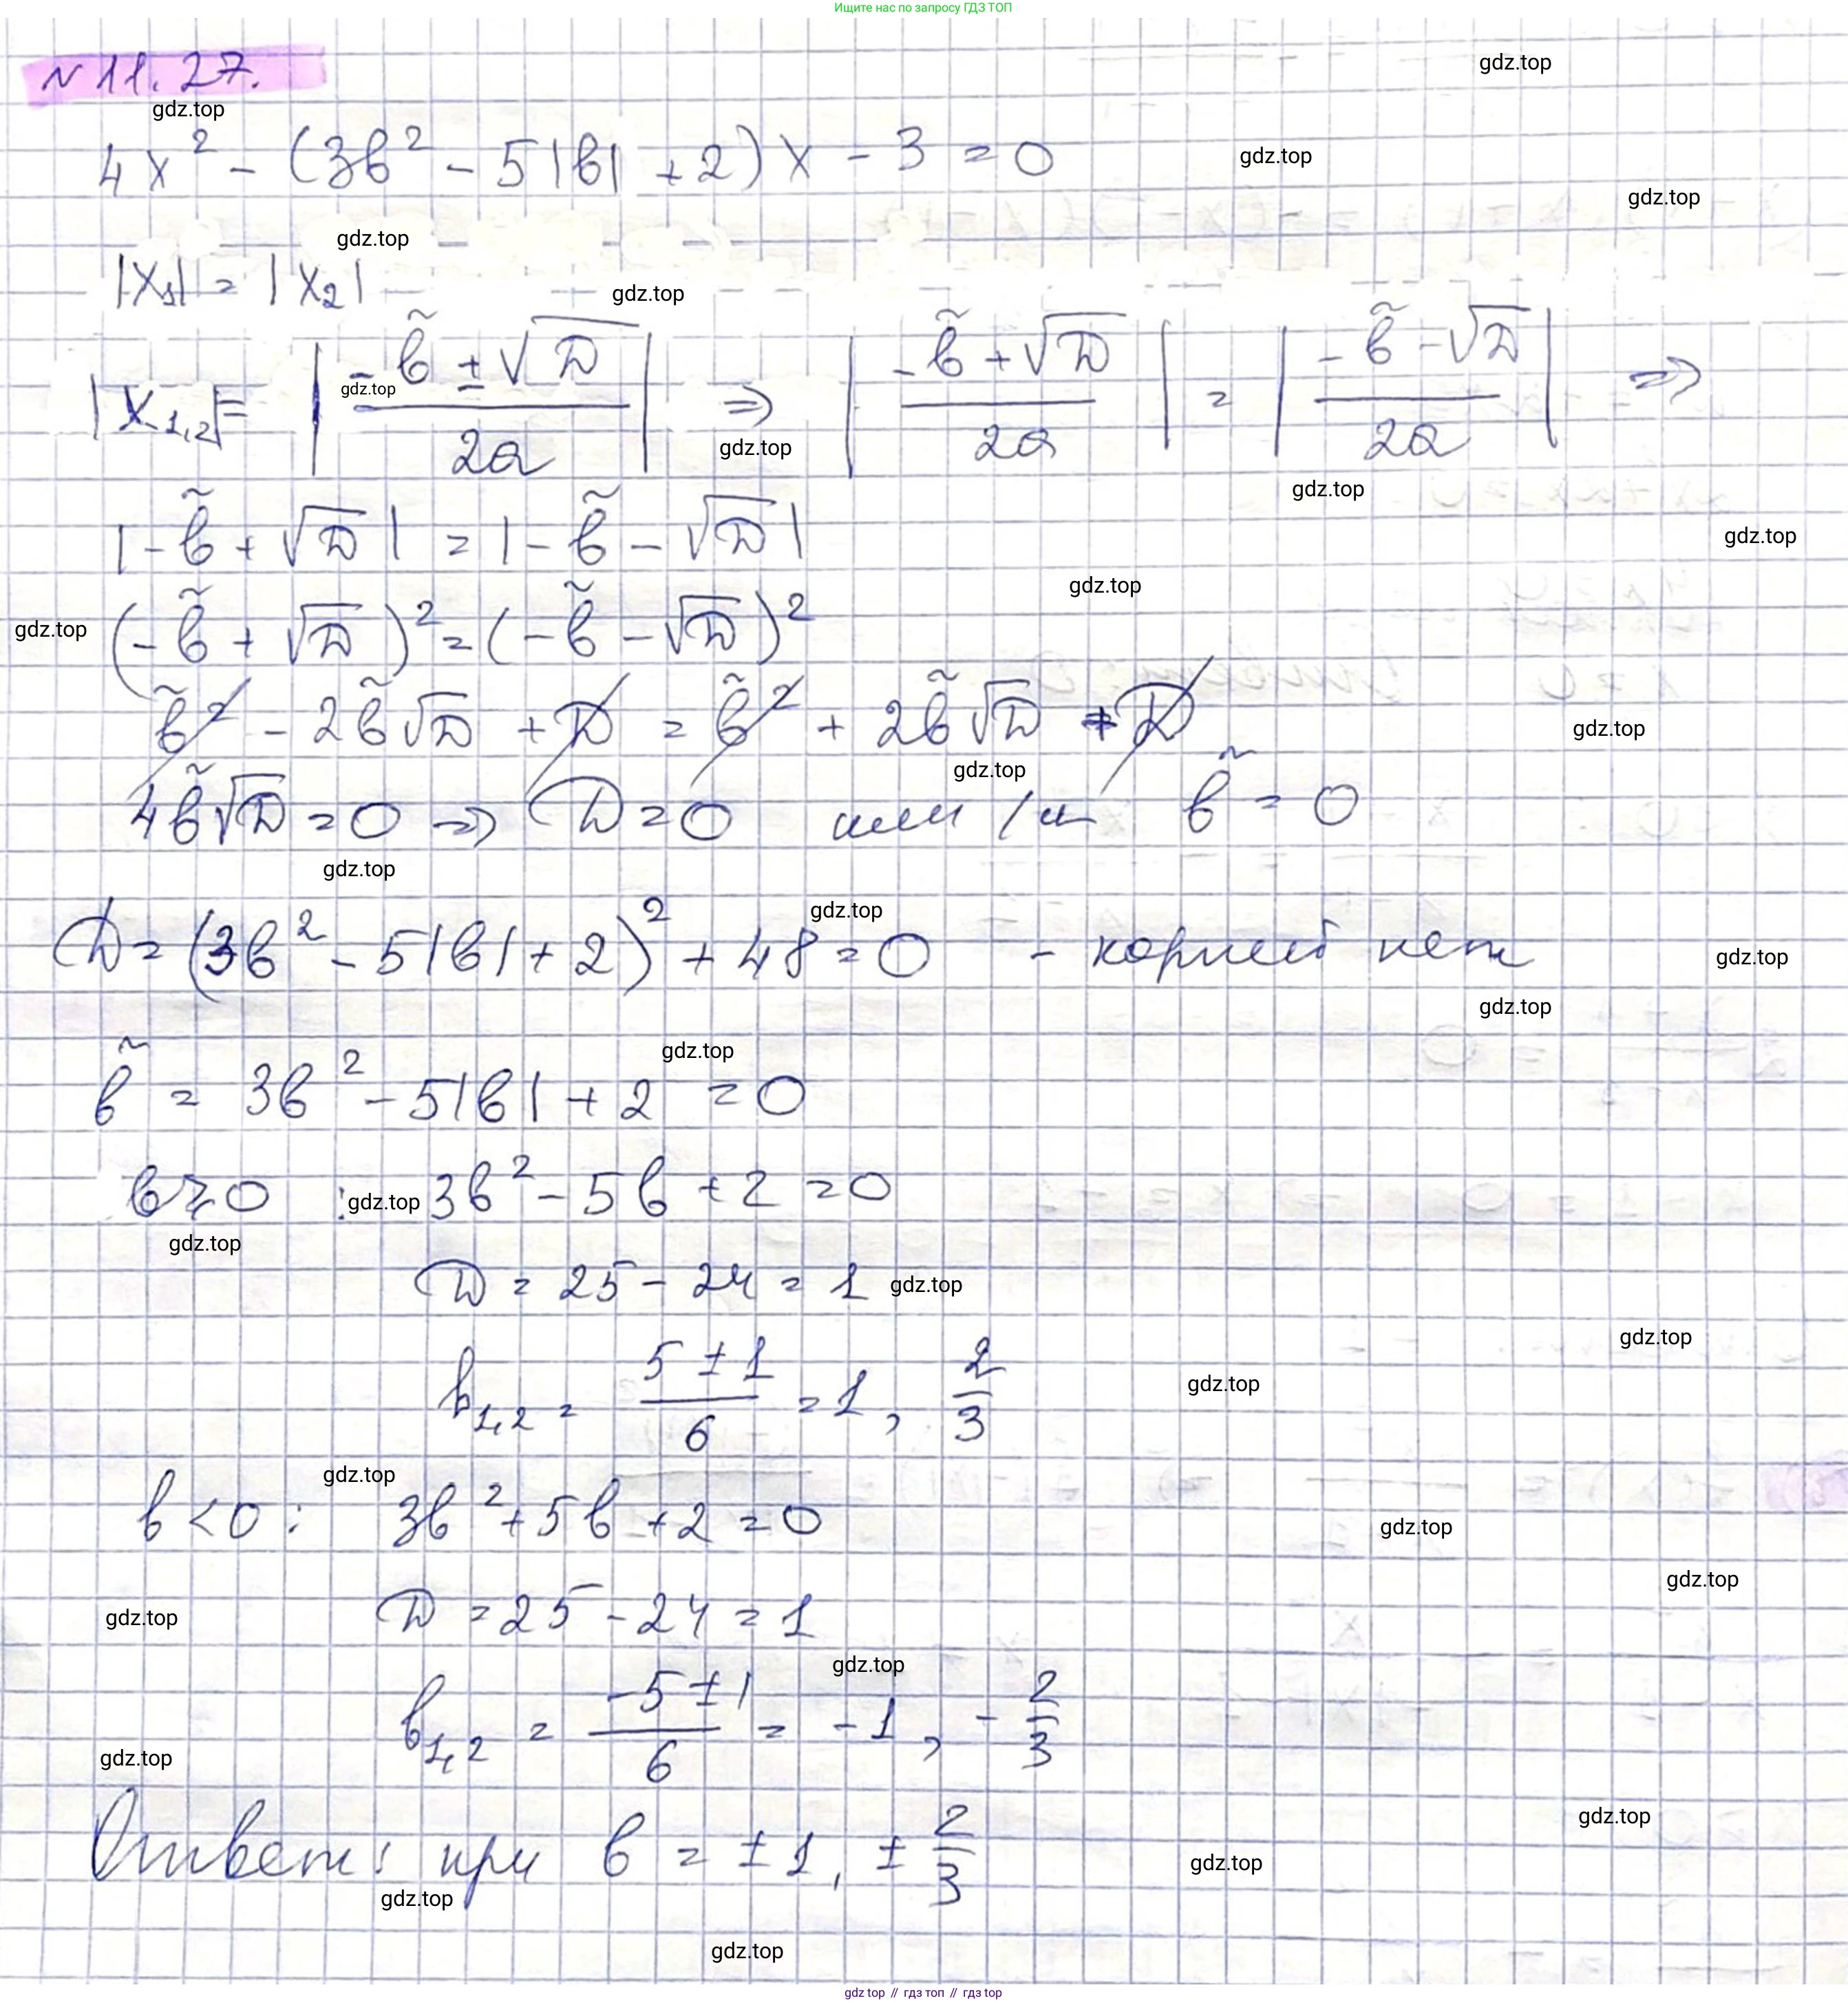 Ищите нас по запросу ГДЗ ТОП
N 11.27.
4x² - (3b² - 5|b| + 2)x - 3 = 0
|x₁| = |x₂|
|x₁,₂| = |(-b̃ ± √D)/2a| ⇒ |(-b̃ + √D)/2a| = |(-b̃ - √D)/2a| ⇒
|-b̃ + √D| = |-b̃ - √D|
(-b̃ + √D)² = (-b̃ - √D)²
b̃² - 2b̃√D + D = b̃² + 2b̃√D + D
4b̃√D = 0 ⇒ D = 0 или/и b̃ = 0
D = (3b² - 5|b| + 2)² + 48 = 0 - корней нет
b̃ = 3b² - 5|b| + 2 = 0
b ≥ 0 : 3b² - 5b + 2 = 0
D = 25 - 24 = 1
b₁,₂ = (5 ± 1)/6 = 1, 2/3
b < 0 : 3b² + 5b + 2 = 0
D = 25 - 24 = 1
b₁,₂ = (-5 ± 1)/6 = -1, -2/3
Ответ: при b = ±1, ±2/3
gdz.top // гдз топ // гдз.top